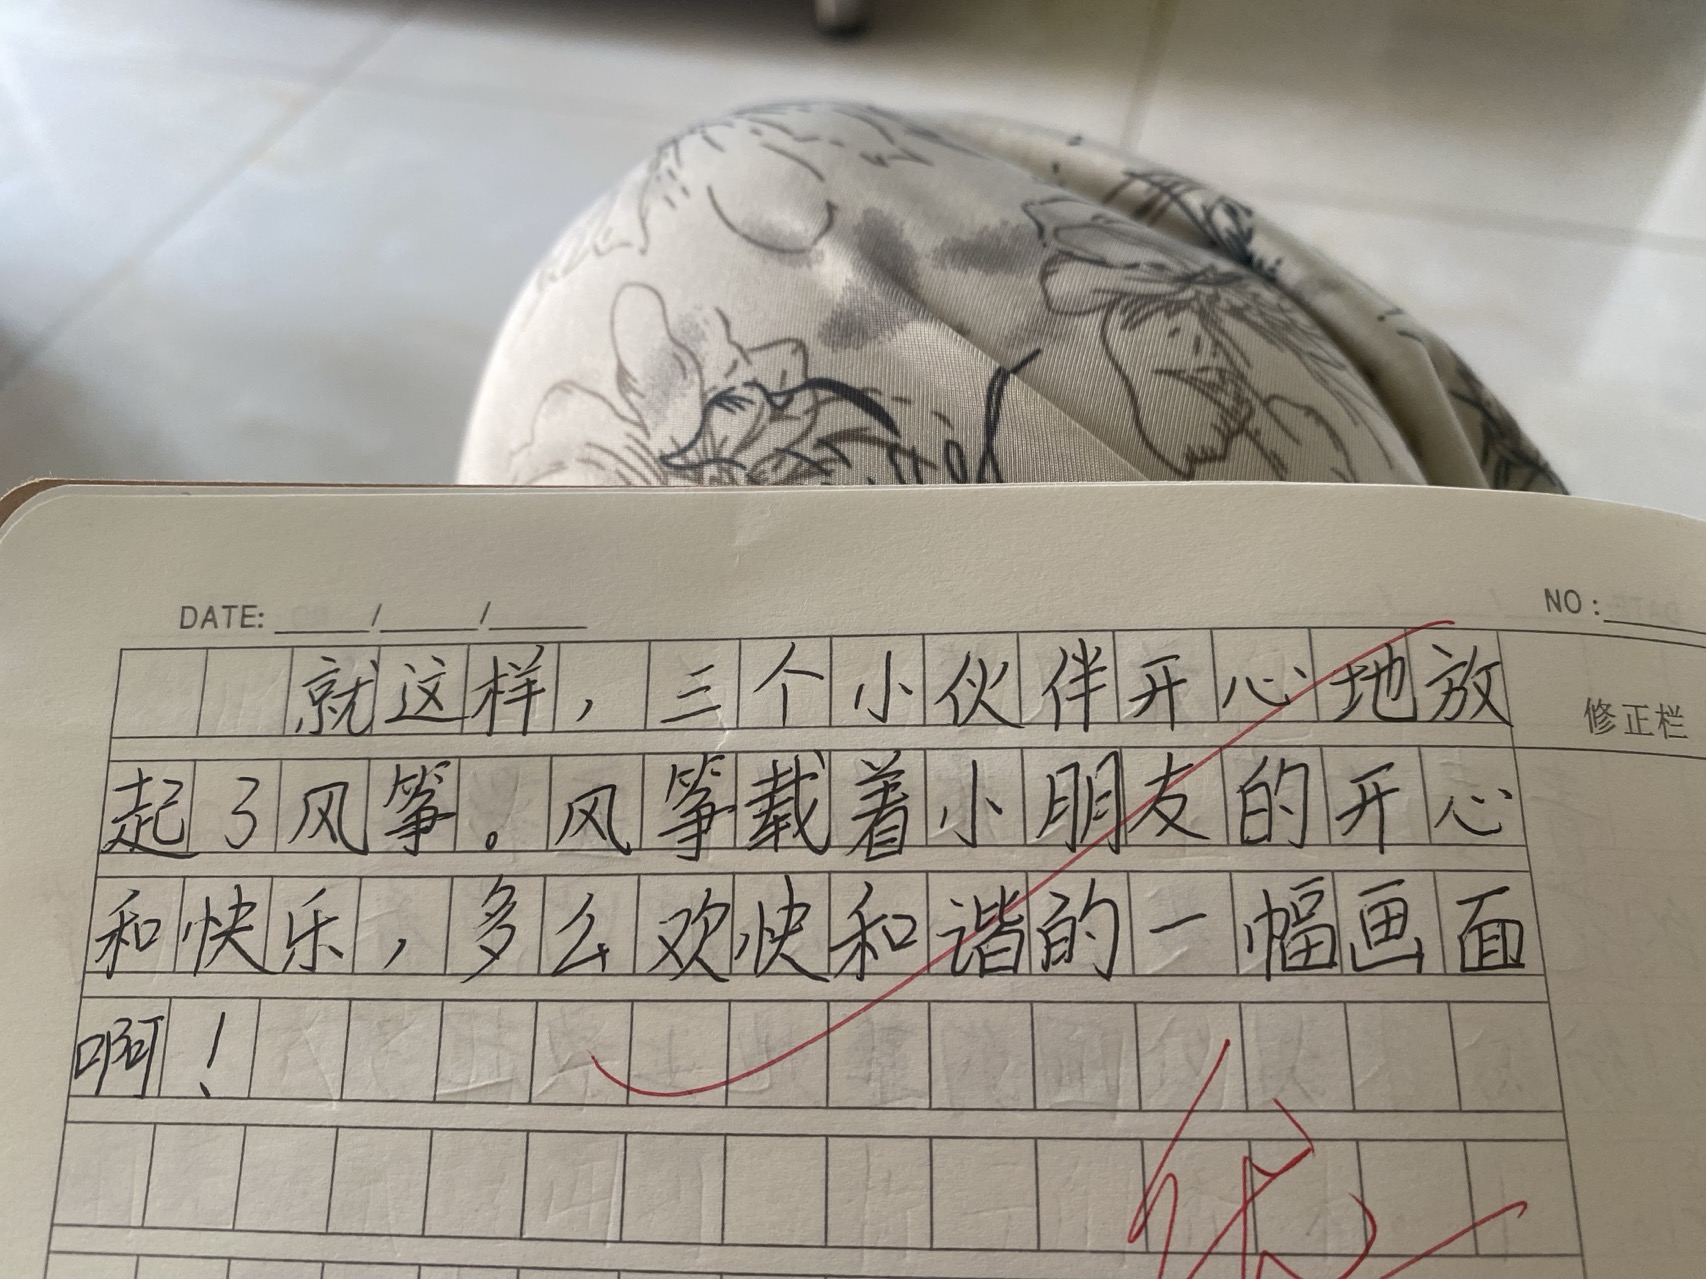 DATE: ____/____/____ NO:
就这样，三个小伙伴开心地放
修正栏
起了风筝。风筝载着小朋友的开心
和快乐，多么欢快和谐的一幅画面
啊！
优